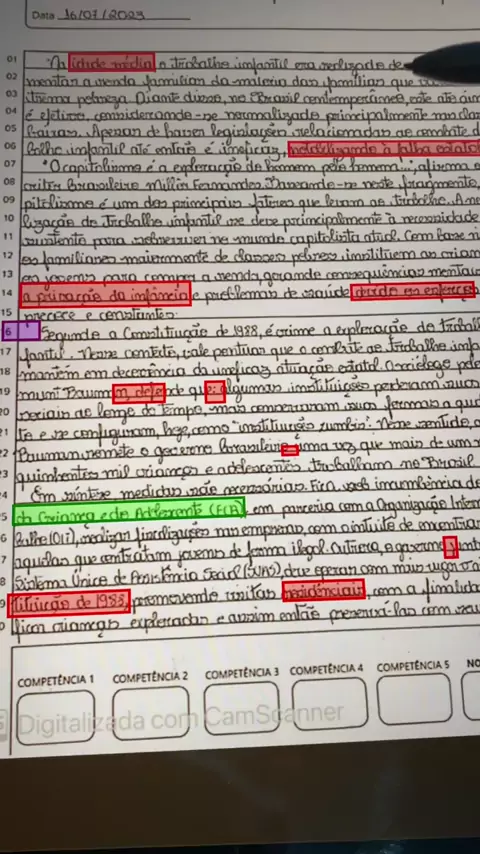 Data 16/07/2023
01 "Na idade média o trabalho infantil era realizado de
02 mentar a renda familiar da maioria das famílias que
03 trema pobreza. Diante disso, no Brasil contemporâneo, este ato ain
04 é efetivo, considerando-se normalizado principalmente nas cla
05 baixas. Apesar de haver legislações relacionadas ao combate d
06 balho infantil até então é ineficaz,
07 "O capitalismo é a exploração do homem pelo homem...", afirma o
08 critor brasileiro Millôr Fernandes. Baseando-se neste fragmento,
09 pitalismo é um dos principais fatores que levam ao trabalho. A
10 lização do trabalho infantil se deve principalmente à necessidade
11 sustento para sobreviver no mundo capitalista atual. Com base n
12 es familiares maiormente de classes pobres instituem as crian
13 os jovens para compor a renda, gerando consequências mentai
14 a privação da infância e problemas de saúde devido os esforços
15 precoce e constantes.
16 Segundo a Constituição de 1988, é crime a exploração do trabal
17 fantil. Nesse contexto, vale pontuar que o combate ao trabalho infa
18 mantém em decorrência da ineficaz atuação estatal. O sociólogo pole
19 muni Bauman, defende que: algumas instituições perderam suas
sociais ao longo do tempo, mas conservaram suas formas a qua
21 te e se configuram, hoje, como "instituições zumbis". Nesse sentido, o
22 Bauman remete o governo brasileiro uma vez que mais de um
23 quinhentos mil crianças e adolescentes trabalham no Brasil
24 Em síntese, medidas são necessárias. Fica sob incumbência do
5 da Criança e do Adolescente (ECA), em parceria com a Organização Intern
6 balho (OIT), realizar fiscalizações nas empresas, com o intuito de encontrar
7 aquelas que contratam jovens de forma ilegal. Outrora, o governo
8 Sistema Único de Assistência Social (SUAS) deve operar com mais vigor
9 tituição de 1988, promovendo visitas residenciais, com a finalida
0 ficar crianças exploradas e assim então preservá-las com seu
COMPETÊNCIA 1 COMPETÊNCIA 2 COMPETÊNCIA 3 COMPETÊNCIA 4 COMPETÊNCIA 5 NO
Digitalizada com CamScanner